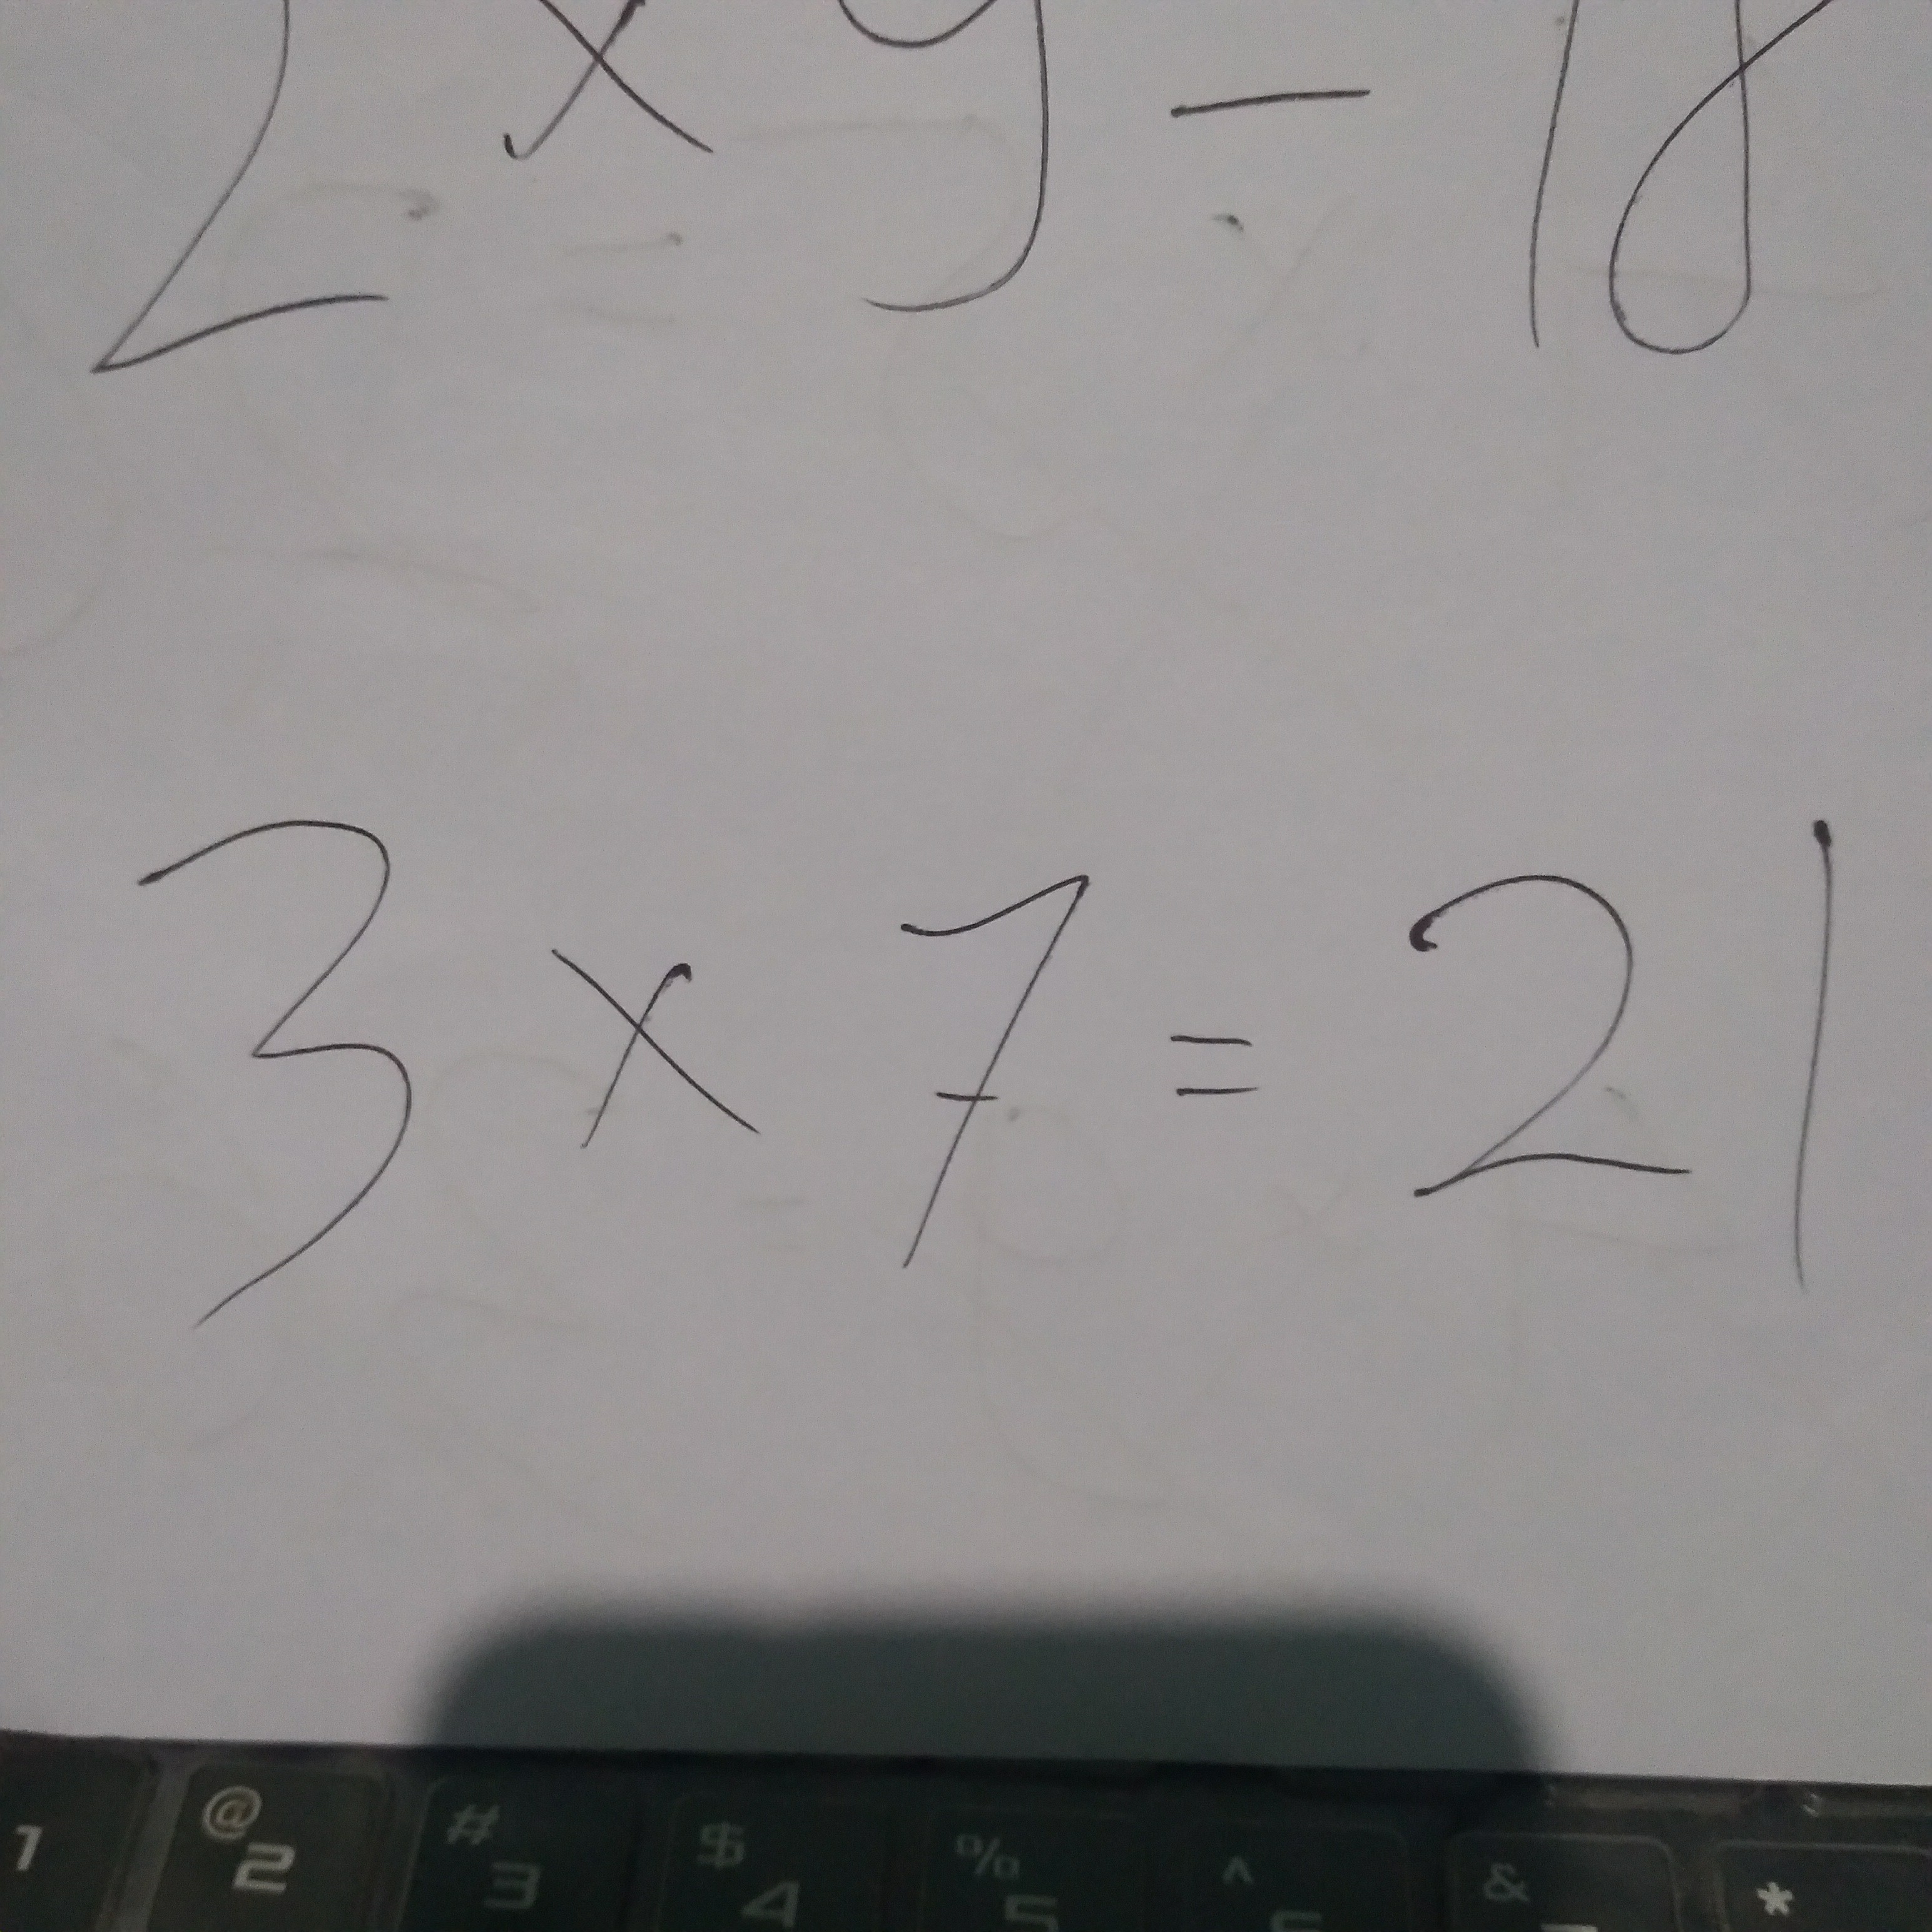 2 × 9 = 18
3 × 7 = 21
1 @ 2 # 3 $ 4 % 5 ^ & *